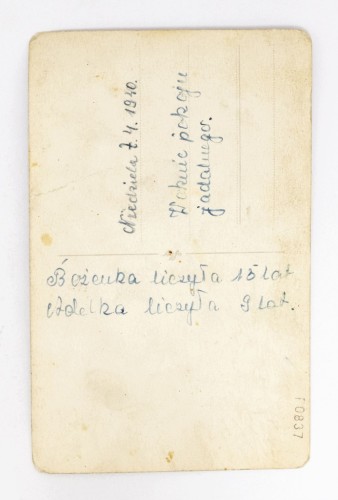 Niedziela 7. 4. 1940.
W oknie pokoju
jadalnego.
Bożenka liczyła 15 lat
Adelka liczyła 9 lat.
10837